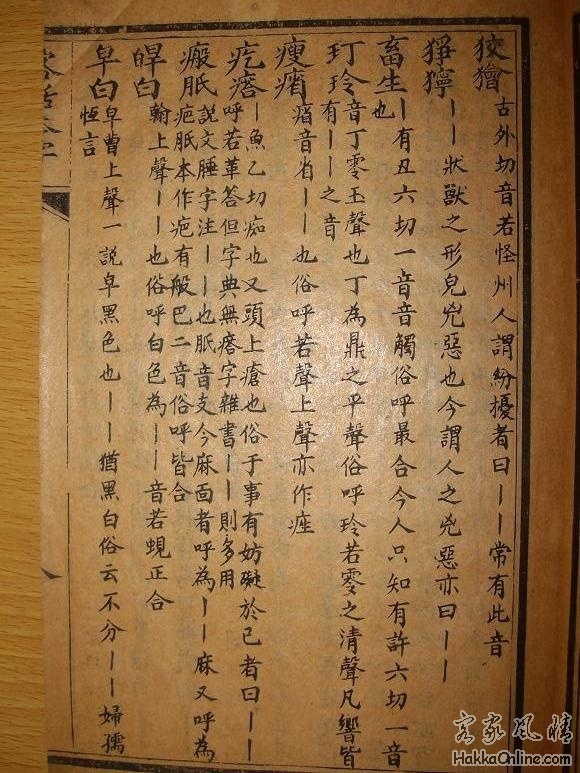 狡獪 古外切音若怪州人謂紛擾者曰〡〡常有此音
猙獰 〡〡狀獸之形皃兇惡也今謂人之兇惡亦曰〡〡
畜生 〡有丑六切一音音觸俗呼最合今人只知有許六切一音也
玎玲 音丁零玉聲也丁為鼎之平聲俗呼玲若零之清聲凡響皆有〡〡之音
瘦㾪 㾪音省〡〡也俗呼若聲上聲亦作𤯝
疙瘩 〡魚乙切痴也又頭上瘡也俗于事有妨礙於己者曰〡〡
呼若革答但字典無瘩字雜書〡〡則多用
瘢胝 說文腄字注〡〡也胝音支今麻面者呼為〡〡麻又呼為
疤胝本作疤有般巴二音俗呼皆合
皔白 翰上聲〡〡也俗呼白色為〡〡音若蜆正合
皁白 皁曹上聲一說皁黑色也〡〡猶黑白俗云不分〡〡婦孺
恆言
八
客家風情
HakkaOnline.com